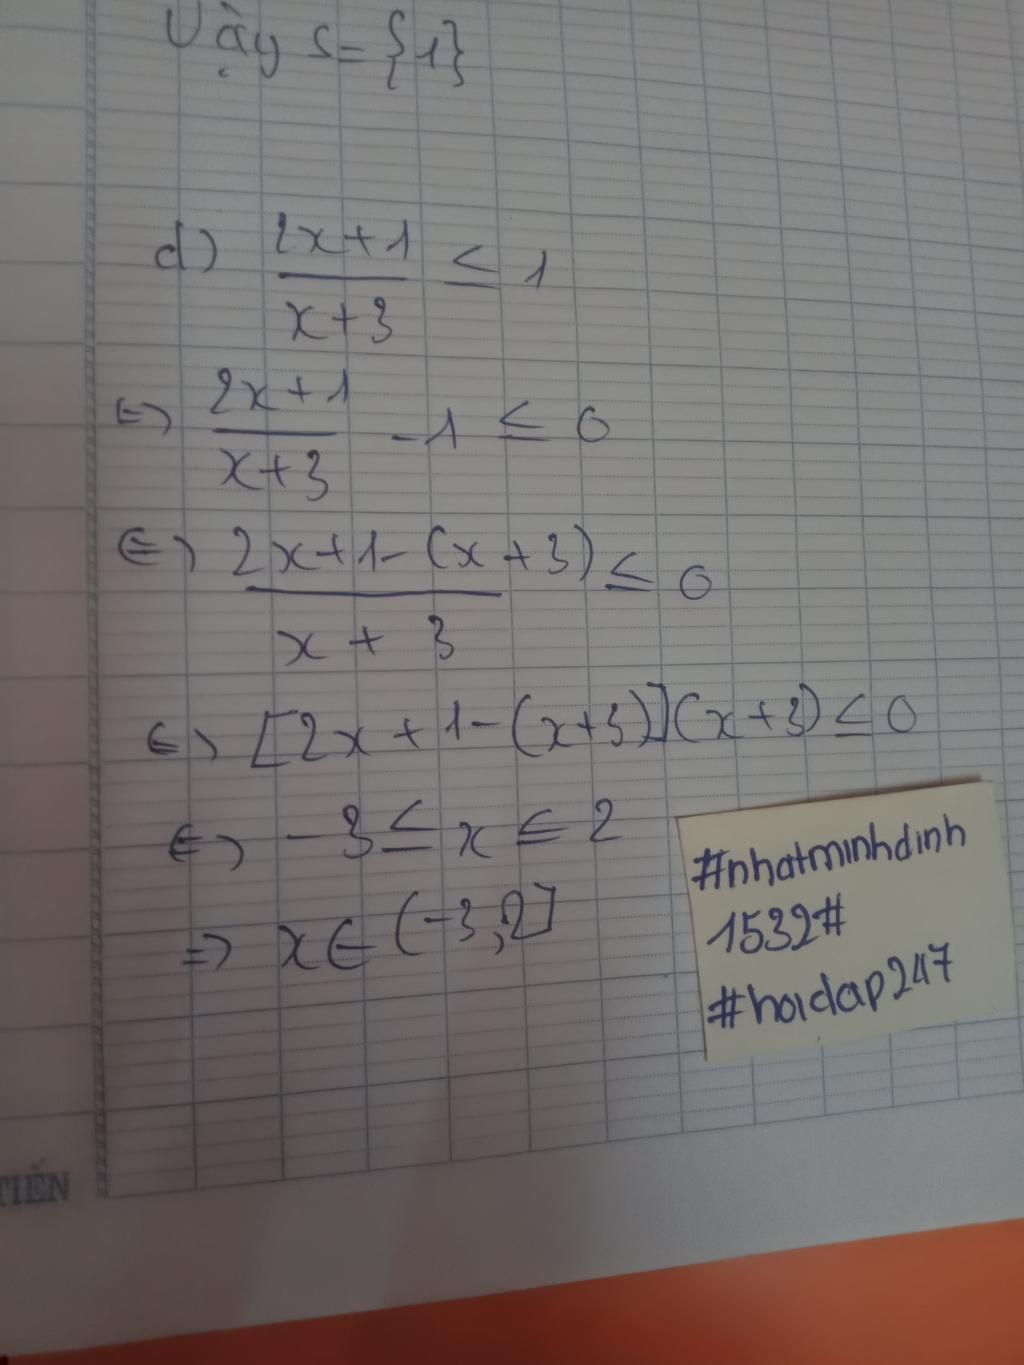 Vậy S = {1}
d) \frac{2x+1}{x+3} ≤ 1
⇔ \frac{2x+1}{x+3} - 1 ≤ 0
⇔ \frac{2x+1-(x+3)}{x+3} ≤ 0
⇔ [2x+1-(x+3)](x+3) ≤ 0
⇔ -3 ≤ x ≤ 2
⇒ x ∈ (-3,2]
#nhatminhdinh
1532#
#hoidap247
TIẾN